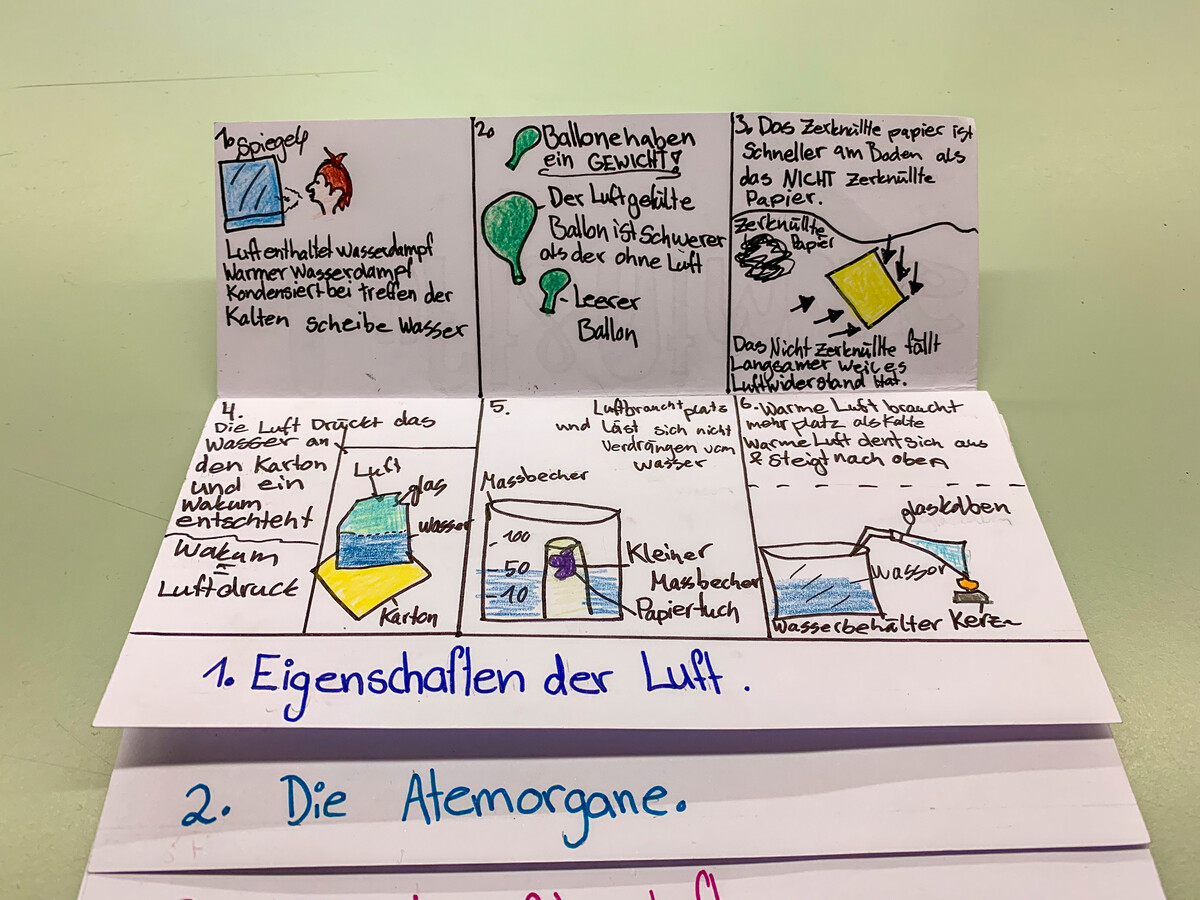 1.
Spiegel
Luft enthaltet Wasserdampf
Warmer Wasserdampf
Kondensiert bei treffen der
Kalten scheibe Wasser
2.
Ballone haben
ein GEWICHT!
Der Luftgefülte
Ballon ist Schwerer
als der ohne Luft
Leerer
Ballon
3. Das Zerknüllte papier ist
Schneller am Boden als
das NICHT Zerknüllte
Papier.
Zerknüllte
Papier
Das Nicht Zerknüllte fällt
Langsamer weil es
Luftwiderstand hat.
4.
Die Luft Drückt das
Wasser an
den Karton
und ein
Wakum
entschteht
Wakum
=
Luftdruck
Luft
glas
wasser
Karton
5.
Luft braucht platz
und Läst sich nicht
Verdrängen vom
wasser
Massbecher
- 100
- 50
- 10
Kleiner
Massbecher
Papiertuch
6. Warme Luft braucht
mehr platz als Kalte
Warme Luft dent sich aus
& steigt nach oben
glaskolben
Wasser
Wasserbehälter Kerze
1. Eigenschaften der Luft.
2. Die Atemorgane.